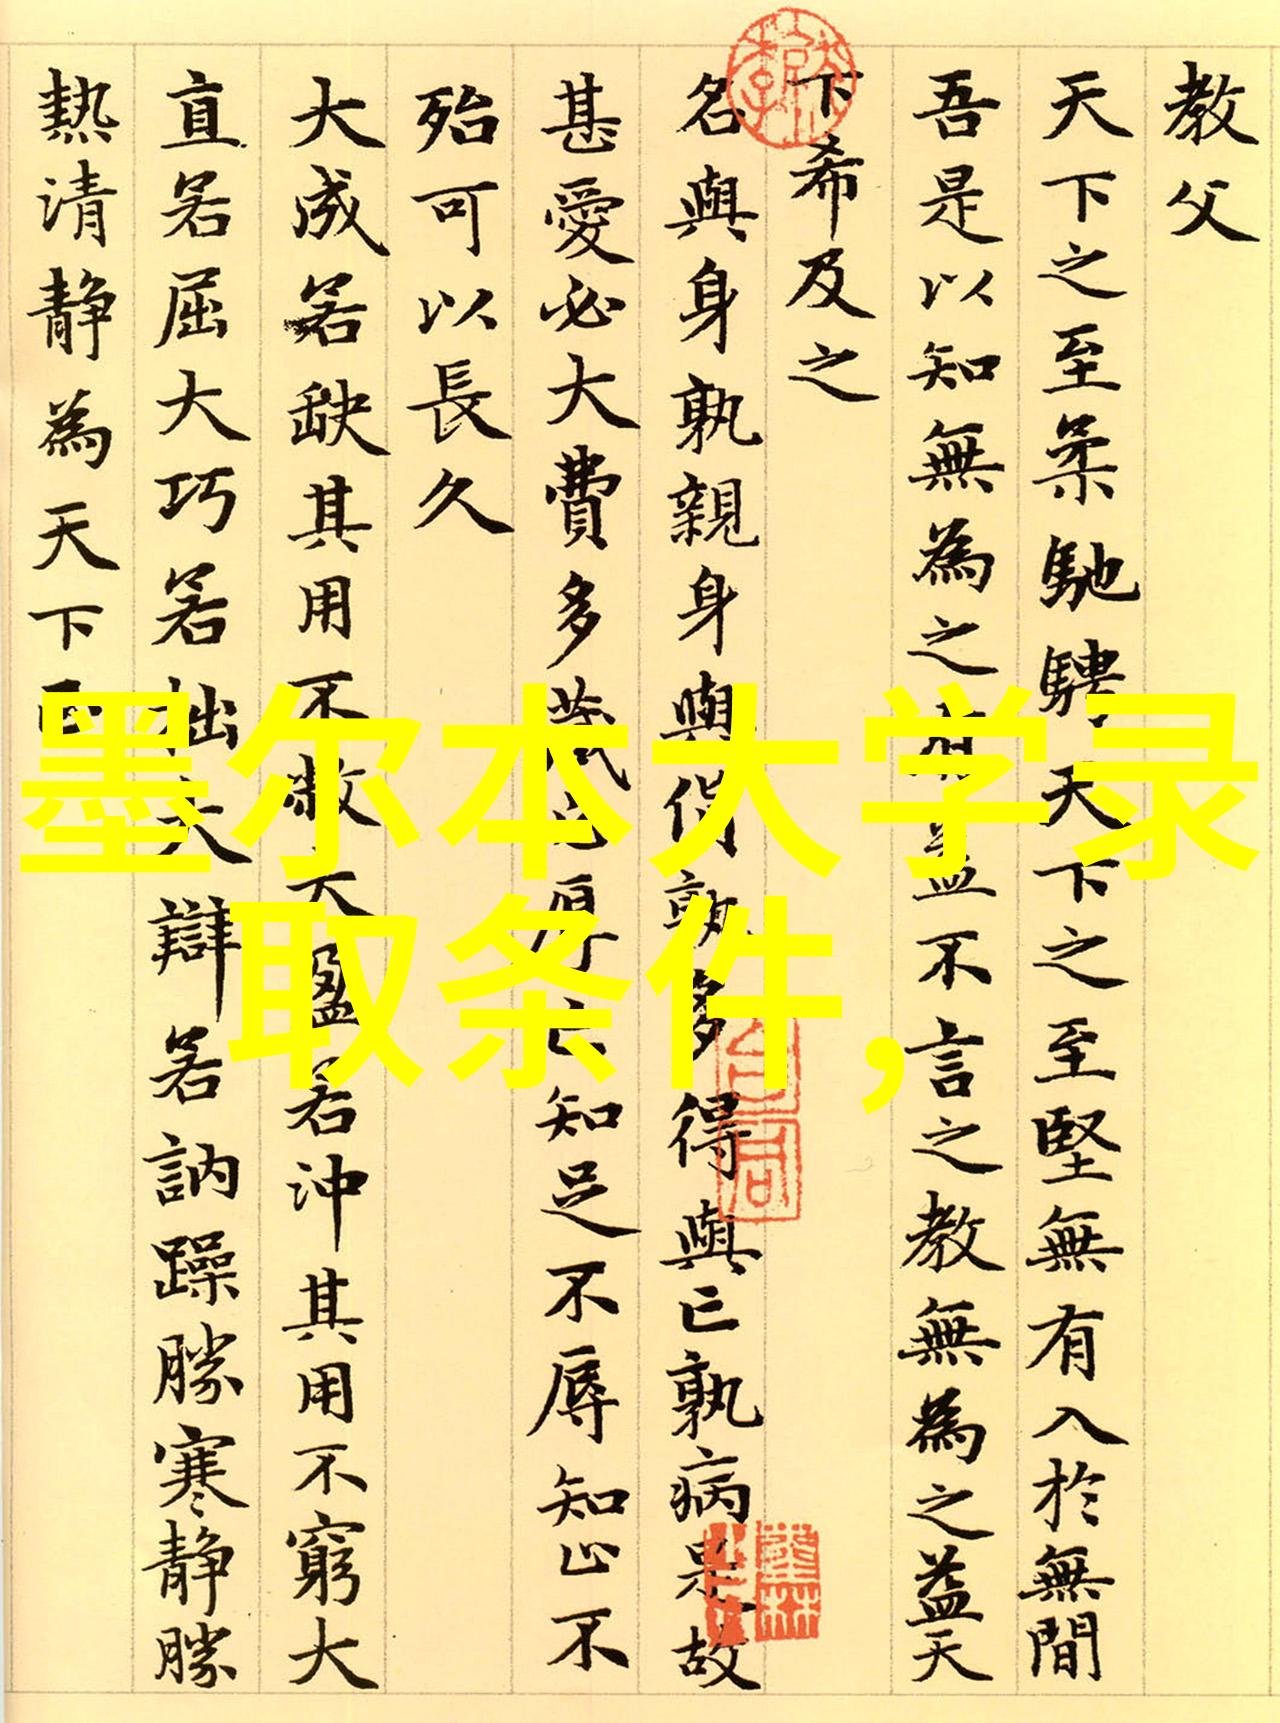 教父
天下之至柔馳騁天下之至堅無有入於無間
吾是以知無為之有益不言之教無為之益天
下希及之
名與身孰親身與貨孰多得與亡孰病是故
甚愛必大費多藏必厚亡知足不辱知止不
殆可以長久
大成若缺其用不敝大盈若沖其用不窮大
直若屈大巧若拙大辯若訥躁勝寒静勝
熱清静為天下正
墨尔本大学录
取条件，